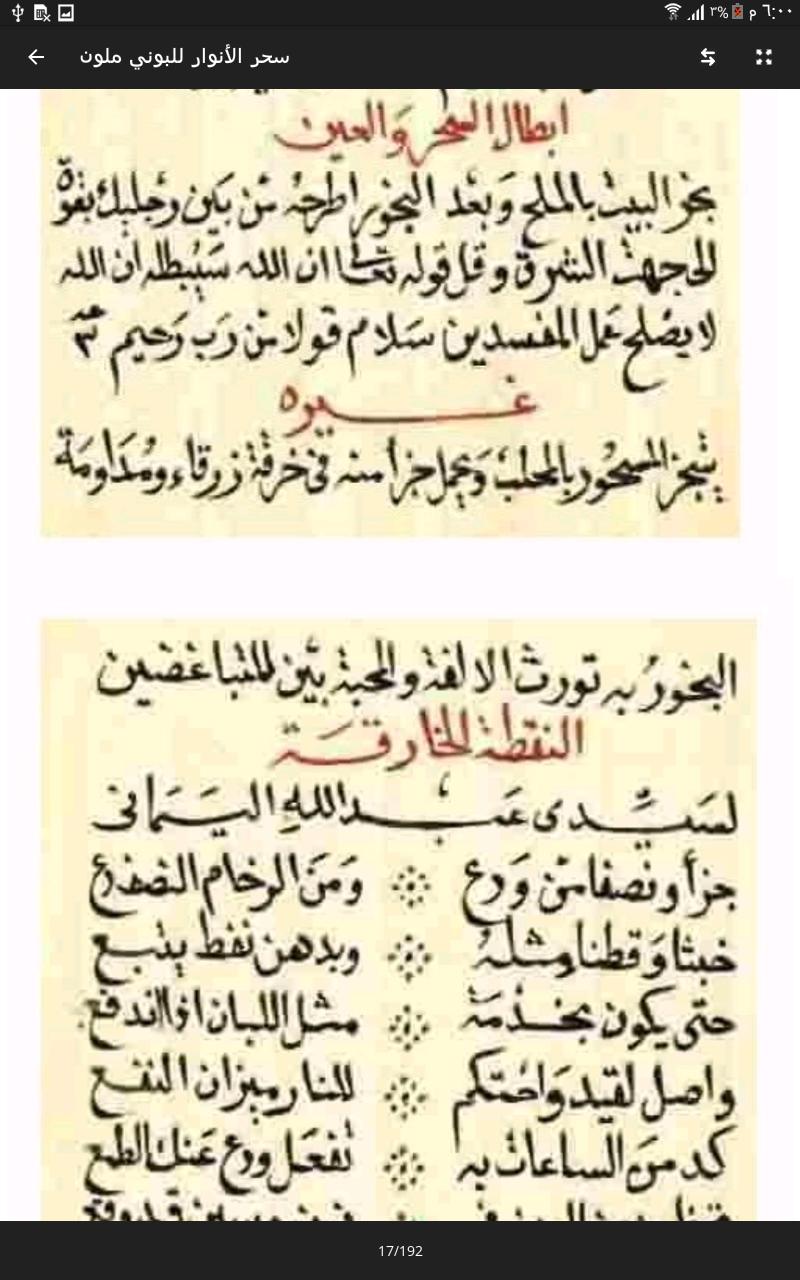 ٦:٠٠ م ٣%
سحر الأنوار للبوني ملون
ابطال السحر والعين
بخر البيت بالملح وبعد البخور اطرحه من بين رجليك بقوة
الى جهة الشرق وقل قوله تعالى ان الله سيبطله ان الله
لا يصلح عمل المفسدين سلام قولا من رب رحيم
غيره
يتبخر المسحور بالمحلب ويحمل جزأ منه فى خرقة زرقاء ومداومة
البخور به تورث الالفة والمحبة بين المتباغضين
النقطة الخارقة
لسيدى عبد الله اليمانى
جزأ ونصفا من ودع ومن الرخام الضفدع
خبثا وقطنا مثله وبدهن نفط يتبع
حتى يكون بخدمة مثل اللبان اذا اندفع
واصل لقيد واحتكم للنار ميزان النفع
كد من الساعات به تفعل ودع عنك الطمع
17/192